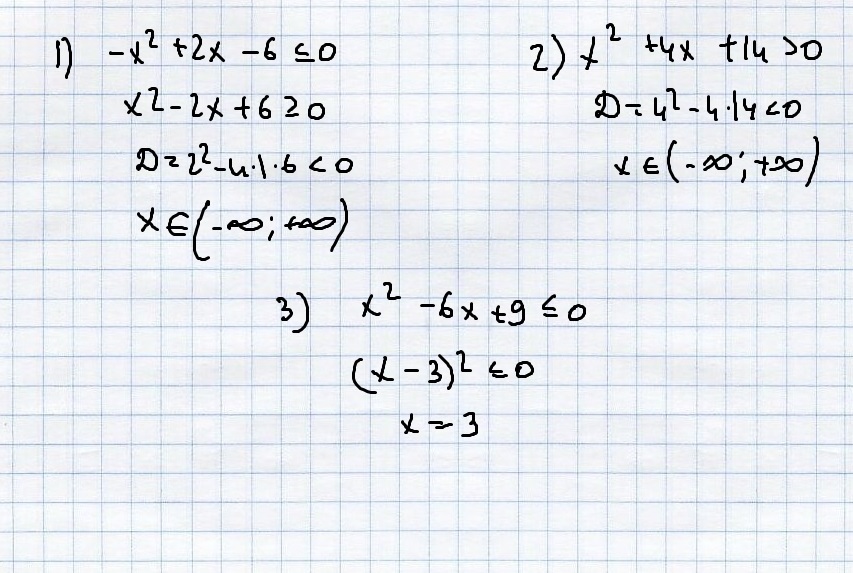 1) -x² +2x -6 ≤ 0
x² - 2x + 6 ≥ 0
D = 2² - 4·1·6 < 0
x ∈ (-∞; +∞)
2) x² +4x +14 > 0
D = 4² - 4·14 < 0
x ∈ (-∞; +∞)
3) x² -6x +9 ≤ 0
(x - 3)² ≤ 0
x = 3